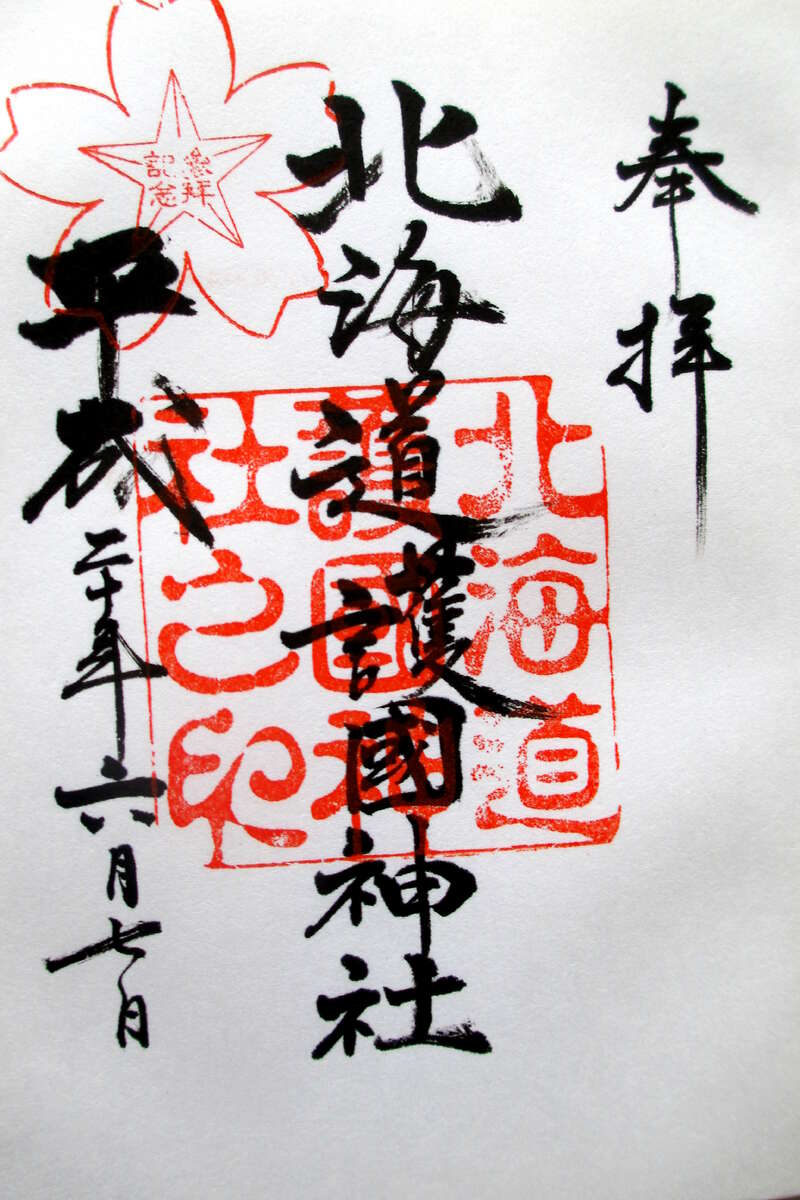 奉拝
北海道護國神社
平成二十年六月七日
参拝
記念
北海道
護國神
社之印